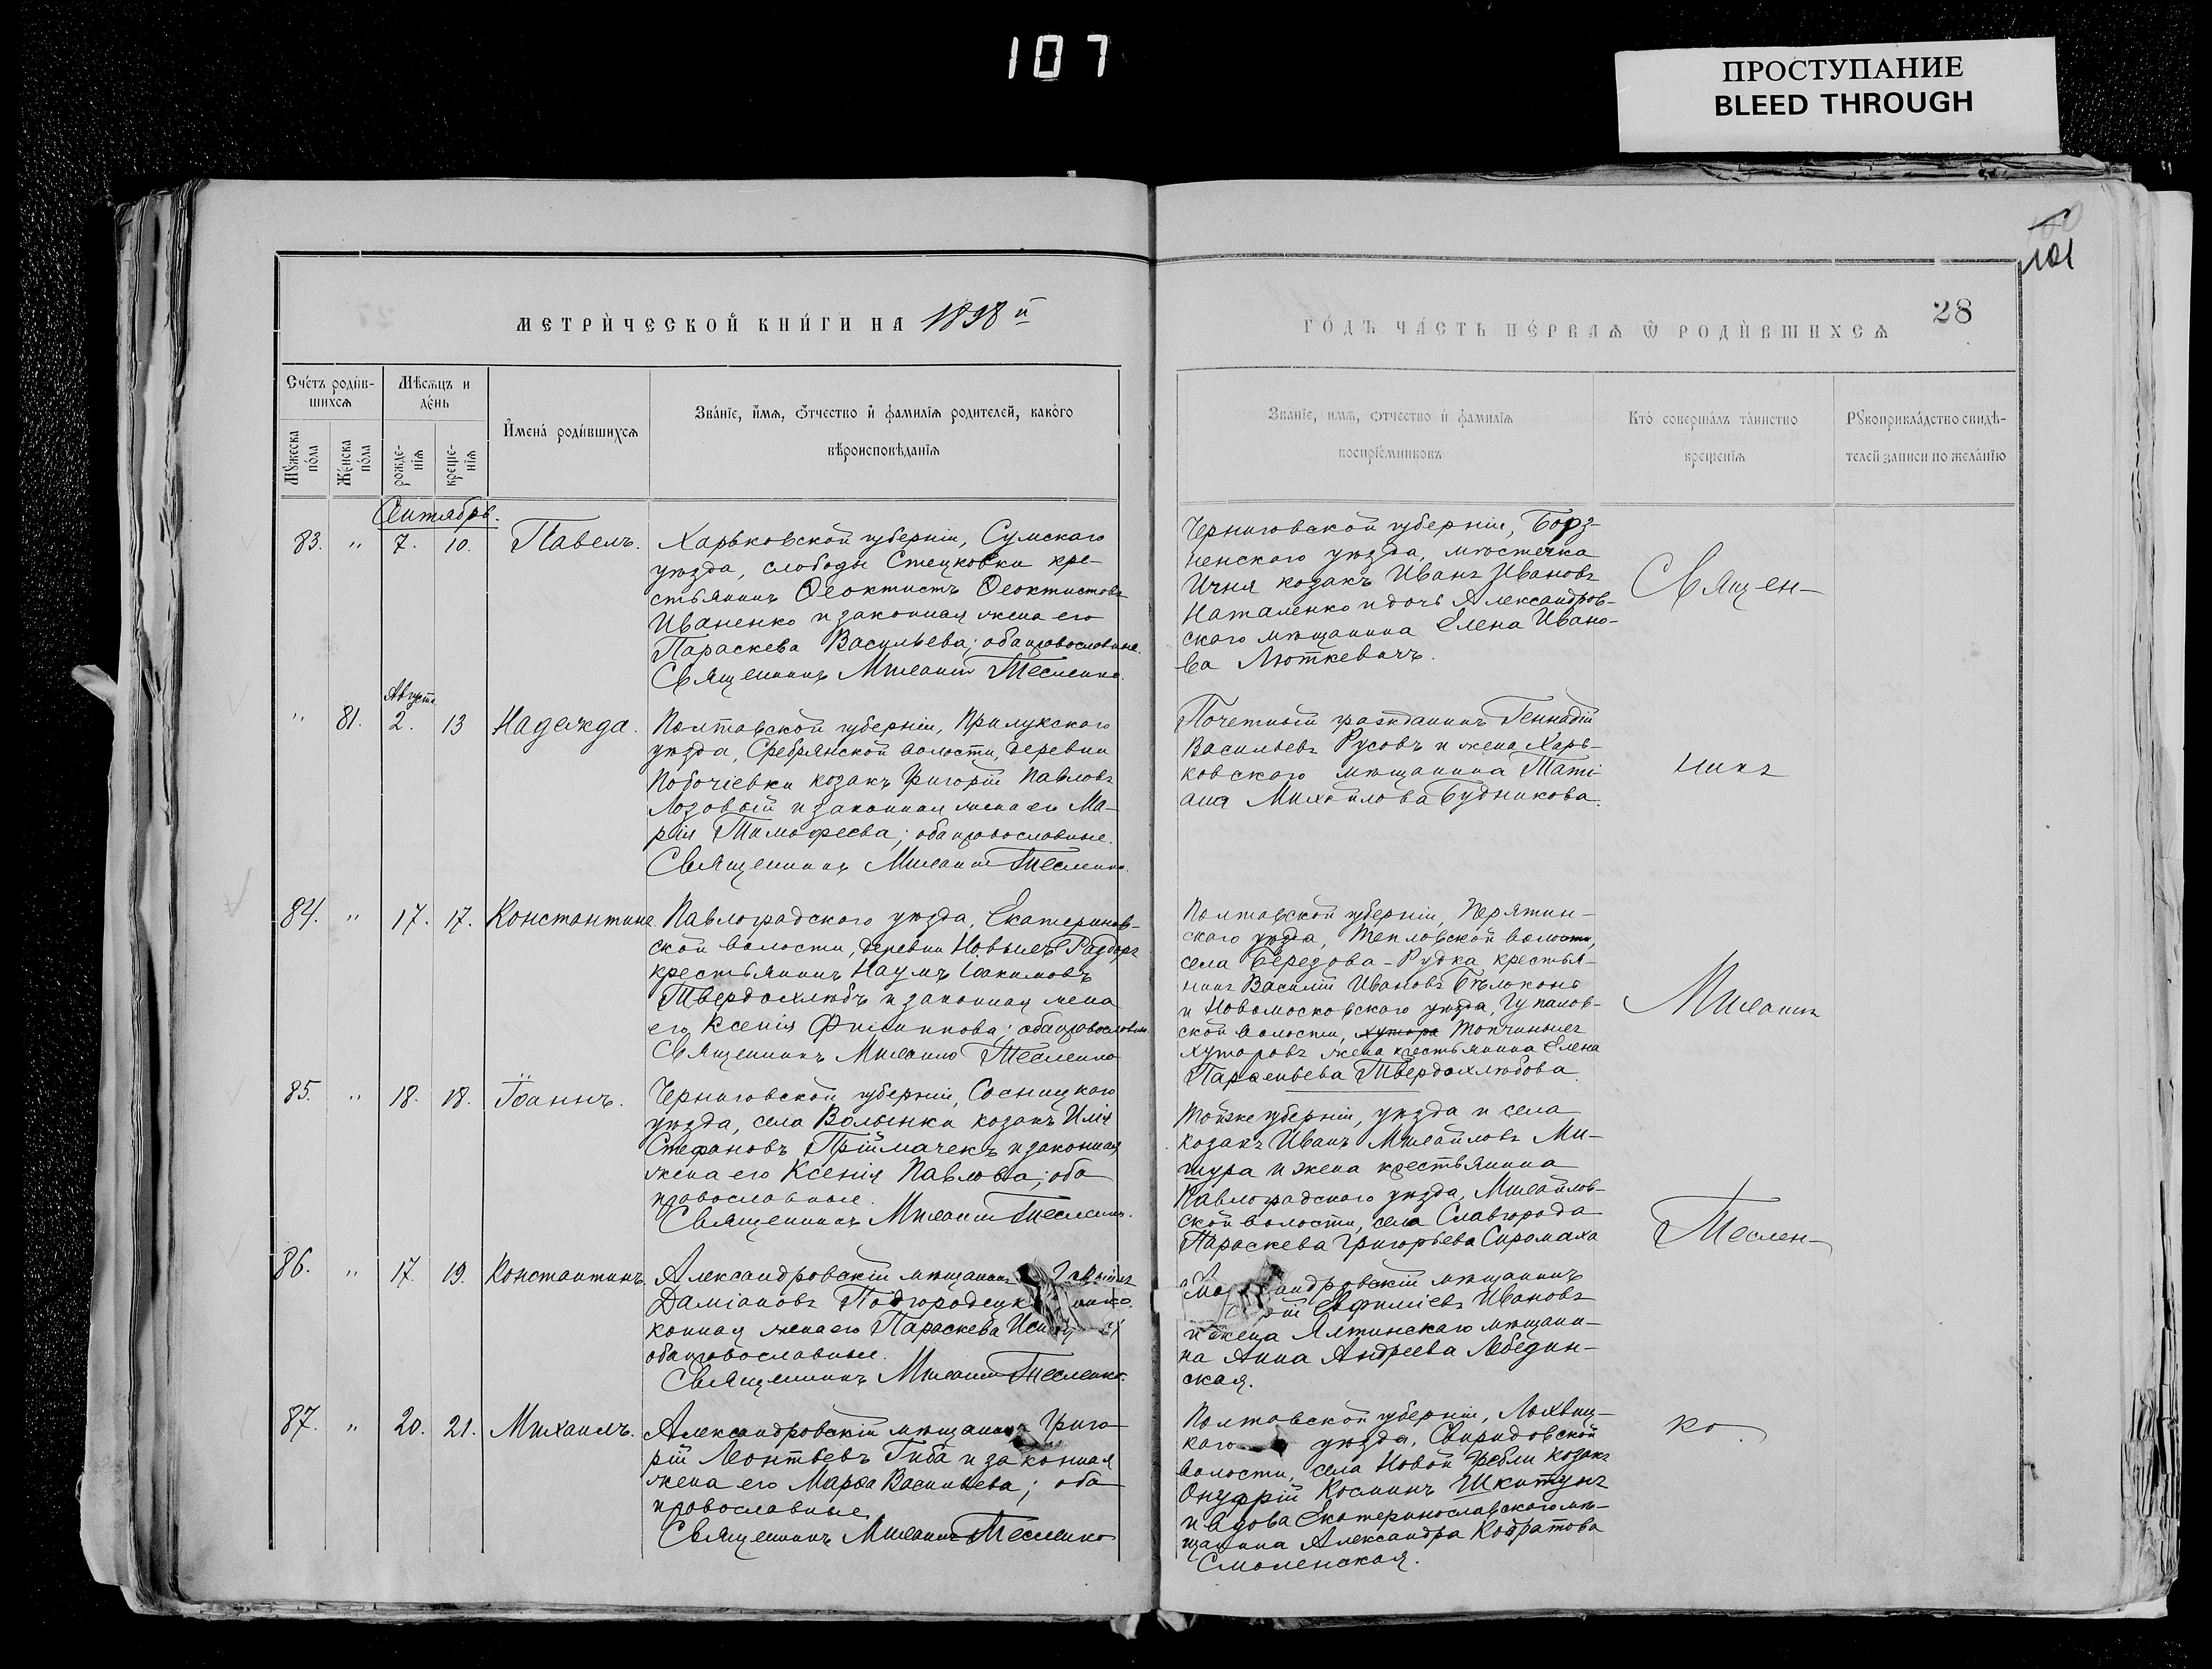 107
ПРОСТУПАНИЕ
BLEED THROUGH
101
28
МЕТРИ́ЧЕСКОЙ КНИ́ГИ НА 1898 й
ГО́ДЪ ЧА́СТЬ ПЕ́РВАѦ Ѿ РОДИ́ВШИХСѦ
Сче́тъ роди́в-
шихсѧ
Мѣсѧцъ и
де́нь
Мꙋ́жеска по́ла
Же́нска по́ла
рожде-
нїѧ
креще-
нїѧ
Имена́ роди́вшихсѧ
Зва́нїе, и́мѧ, ѻ́тчество и фамилїѧ родителей, како́го
вѣроисповѣданїѧ
Зва́нїе, имѧ, ѻтчество и фамилїѧ
воспрїе́мниковъ
Кто́ соверша́лъ та́инство
креще́нїѧ
Рꙋкоприкла́дство свидѣ́-
телей записи по жела́нїю
Сентябрь.
83. " 7. 10. Павелъ.
Харьковской губерніи, Сумскаго
уѣзда, слободы Стецковки кре-
стьянинъ Ѳеоктистъ Ѳеоктистовъ
Иваненко и законная жена его
Параскева Васильева; оба православные.
Священникъ Михаилъ Тесленко.
Черниговской губерніи, Борз-
ненскаго уѣзда, мѣстечка
Ичня козакъ Иванъ Ивановъ
Наталенко и дочь Александров-
скаго мѣщанина Елена Ивано-
ва Люткевичъ.
Священ-
Августа
" 81. 2. 13 Надежда.
Полтавской губерніи, Прилукскаго
уѣзда, Сребрянской волости, деревни
Побочіевки козакъ Григорій Павловъ
Лозовый и законная жена его Ма-
рія Тимофеева; оба православные.
Священникъ Михаилъ Тесленко.
Почетный гражданинъ Геннадій
Васильевъ Русовъ и жена Харь-
ковскаго мѣщанина Таті-
ана Михайлова Будникова.
никъ
84. " 17. 17. Константинъ
Павлоградскаго уѣзда, Екатеринов-
ской волости, деревни Новыхъ
крестьянинъ Наумъ Іоакимовъ
Твердохлѣбъ и законная жена
его Ксенія Филиппова; оба православны.
Священникъ Михаилъ Тесленко
Полтавской губерніи, Пирятин-
скаго уѣзда, Тепловской волости,
села Березова-Рудка крестья-
нинъ Василій Ивановъ Бѣлоконь
и Новомосковскаго уѣзда, Гупалов-
ской волости, хутора
хуторовъ жена крестьянина Елена
Парѳеньева Твердохлѣбова.
Михаилъ
85. " 18. 18. Іоаннъ.
Черниговской губерніи, Сосницкаго
уѣзда, села Волынки козакъ Илія
Стефановъ Пріймачекъ и законная
жена его Ксенія Павлова; оба
православные.
Священникъ Михаилъ Тесленко.
Той же губерніи, уѣзда и села
козакъ Иванъ Михайловъ Ми-
шура и жена крестьянина
Павлоградскаго уѣзда, Михайлов-
ской волости, села Славгорода
Параскева Григорьева Сиромаха
Теслен-
86. " 17. 19. Константинъ.
Александровскій мѣщанинъ
Даміановъ
конная жена его Параскева
оба православные.
Священникъ Михаилъ Тесленко.
мѣщанинъ
Евфиміевъ Ивановъ
и жена Ялтинскаго мѣщани-
на Анна Андреева Лебедин-
ская.
87. " 20. 21. Михаилъ.
Александровскій мѣщанинъ Григо-
рій Леонтьевъ Гиба и законная
жена его Марѳа Васильева; оба
православные
Священникъ Михаилъ Тесленко
Полтавской губерніи, Лохвиц-
каго уѣзда, Свиридовской
волости, села Новой Гребли козакъ
Онуфрій Косминъ Шкитунъ
и вдова Екатеринославскаго мѣ-
щанина Александра Кодратова
Смоленская.
ко.